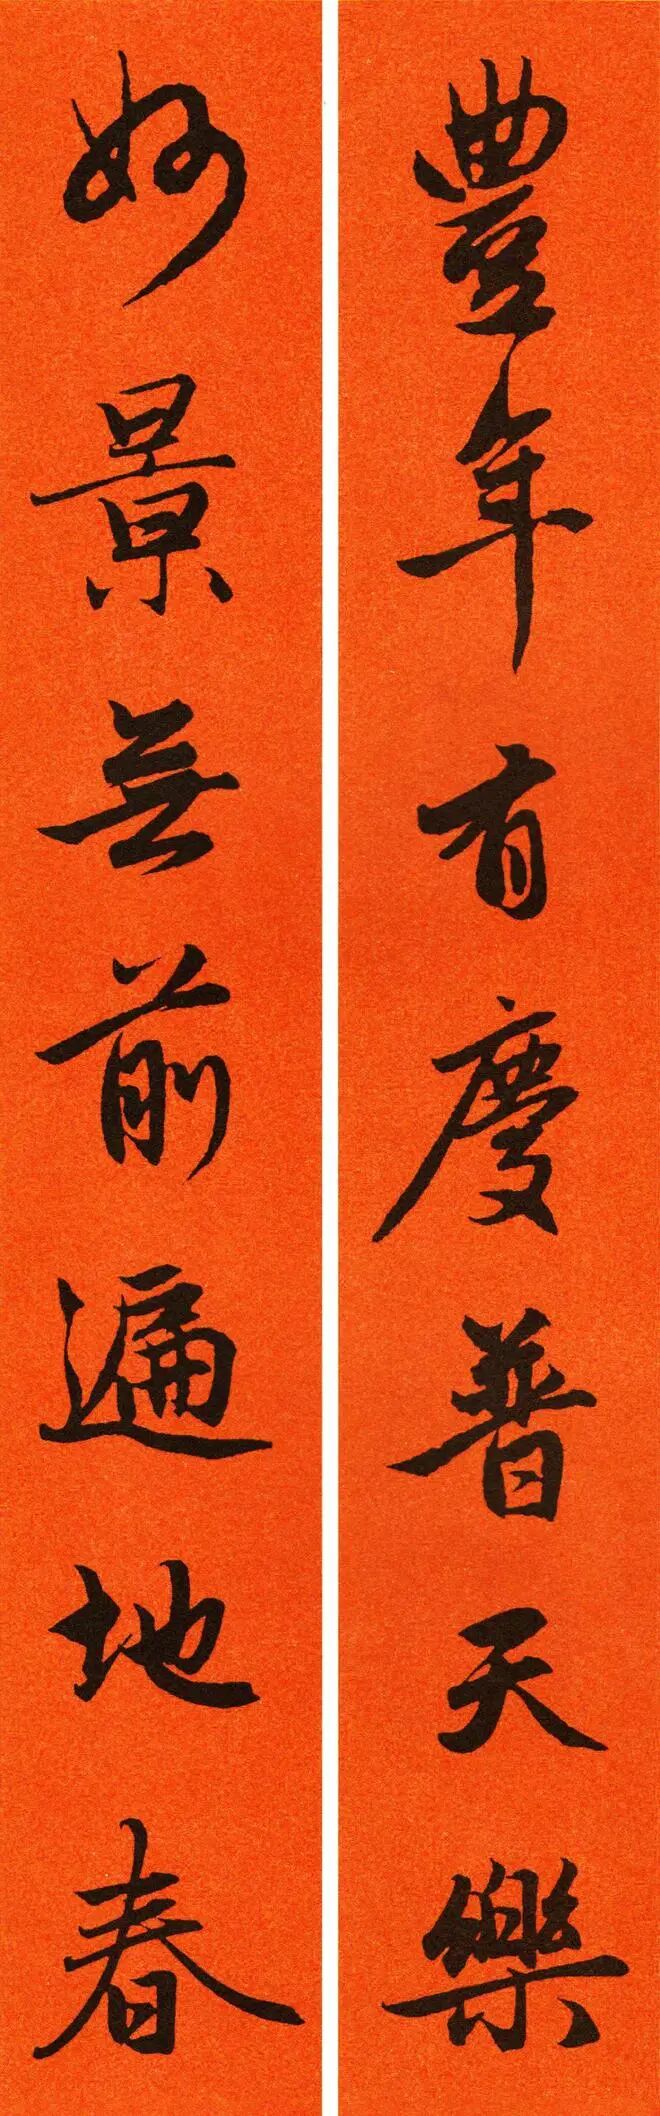 豐年有慶普天樂
妙景無前遍地春